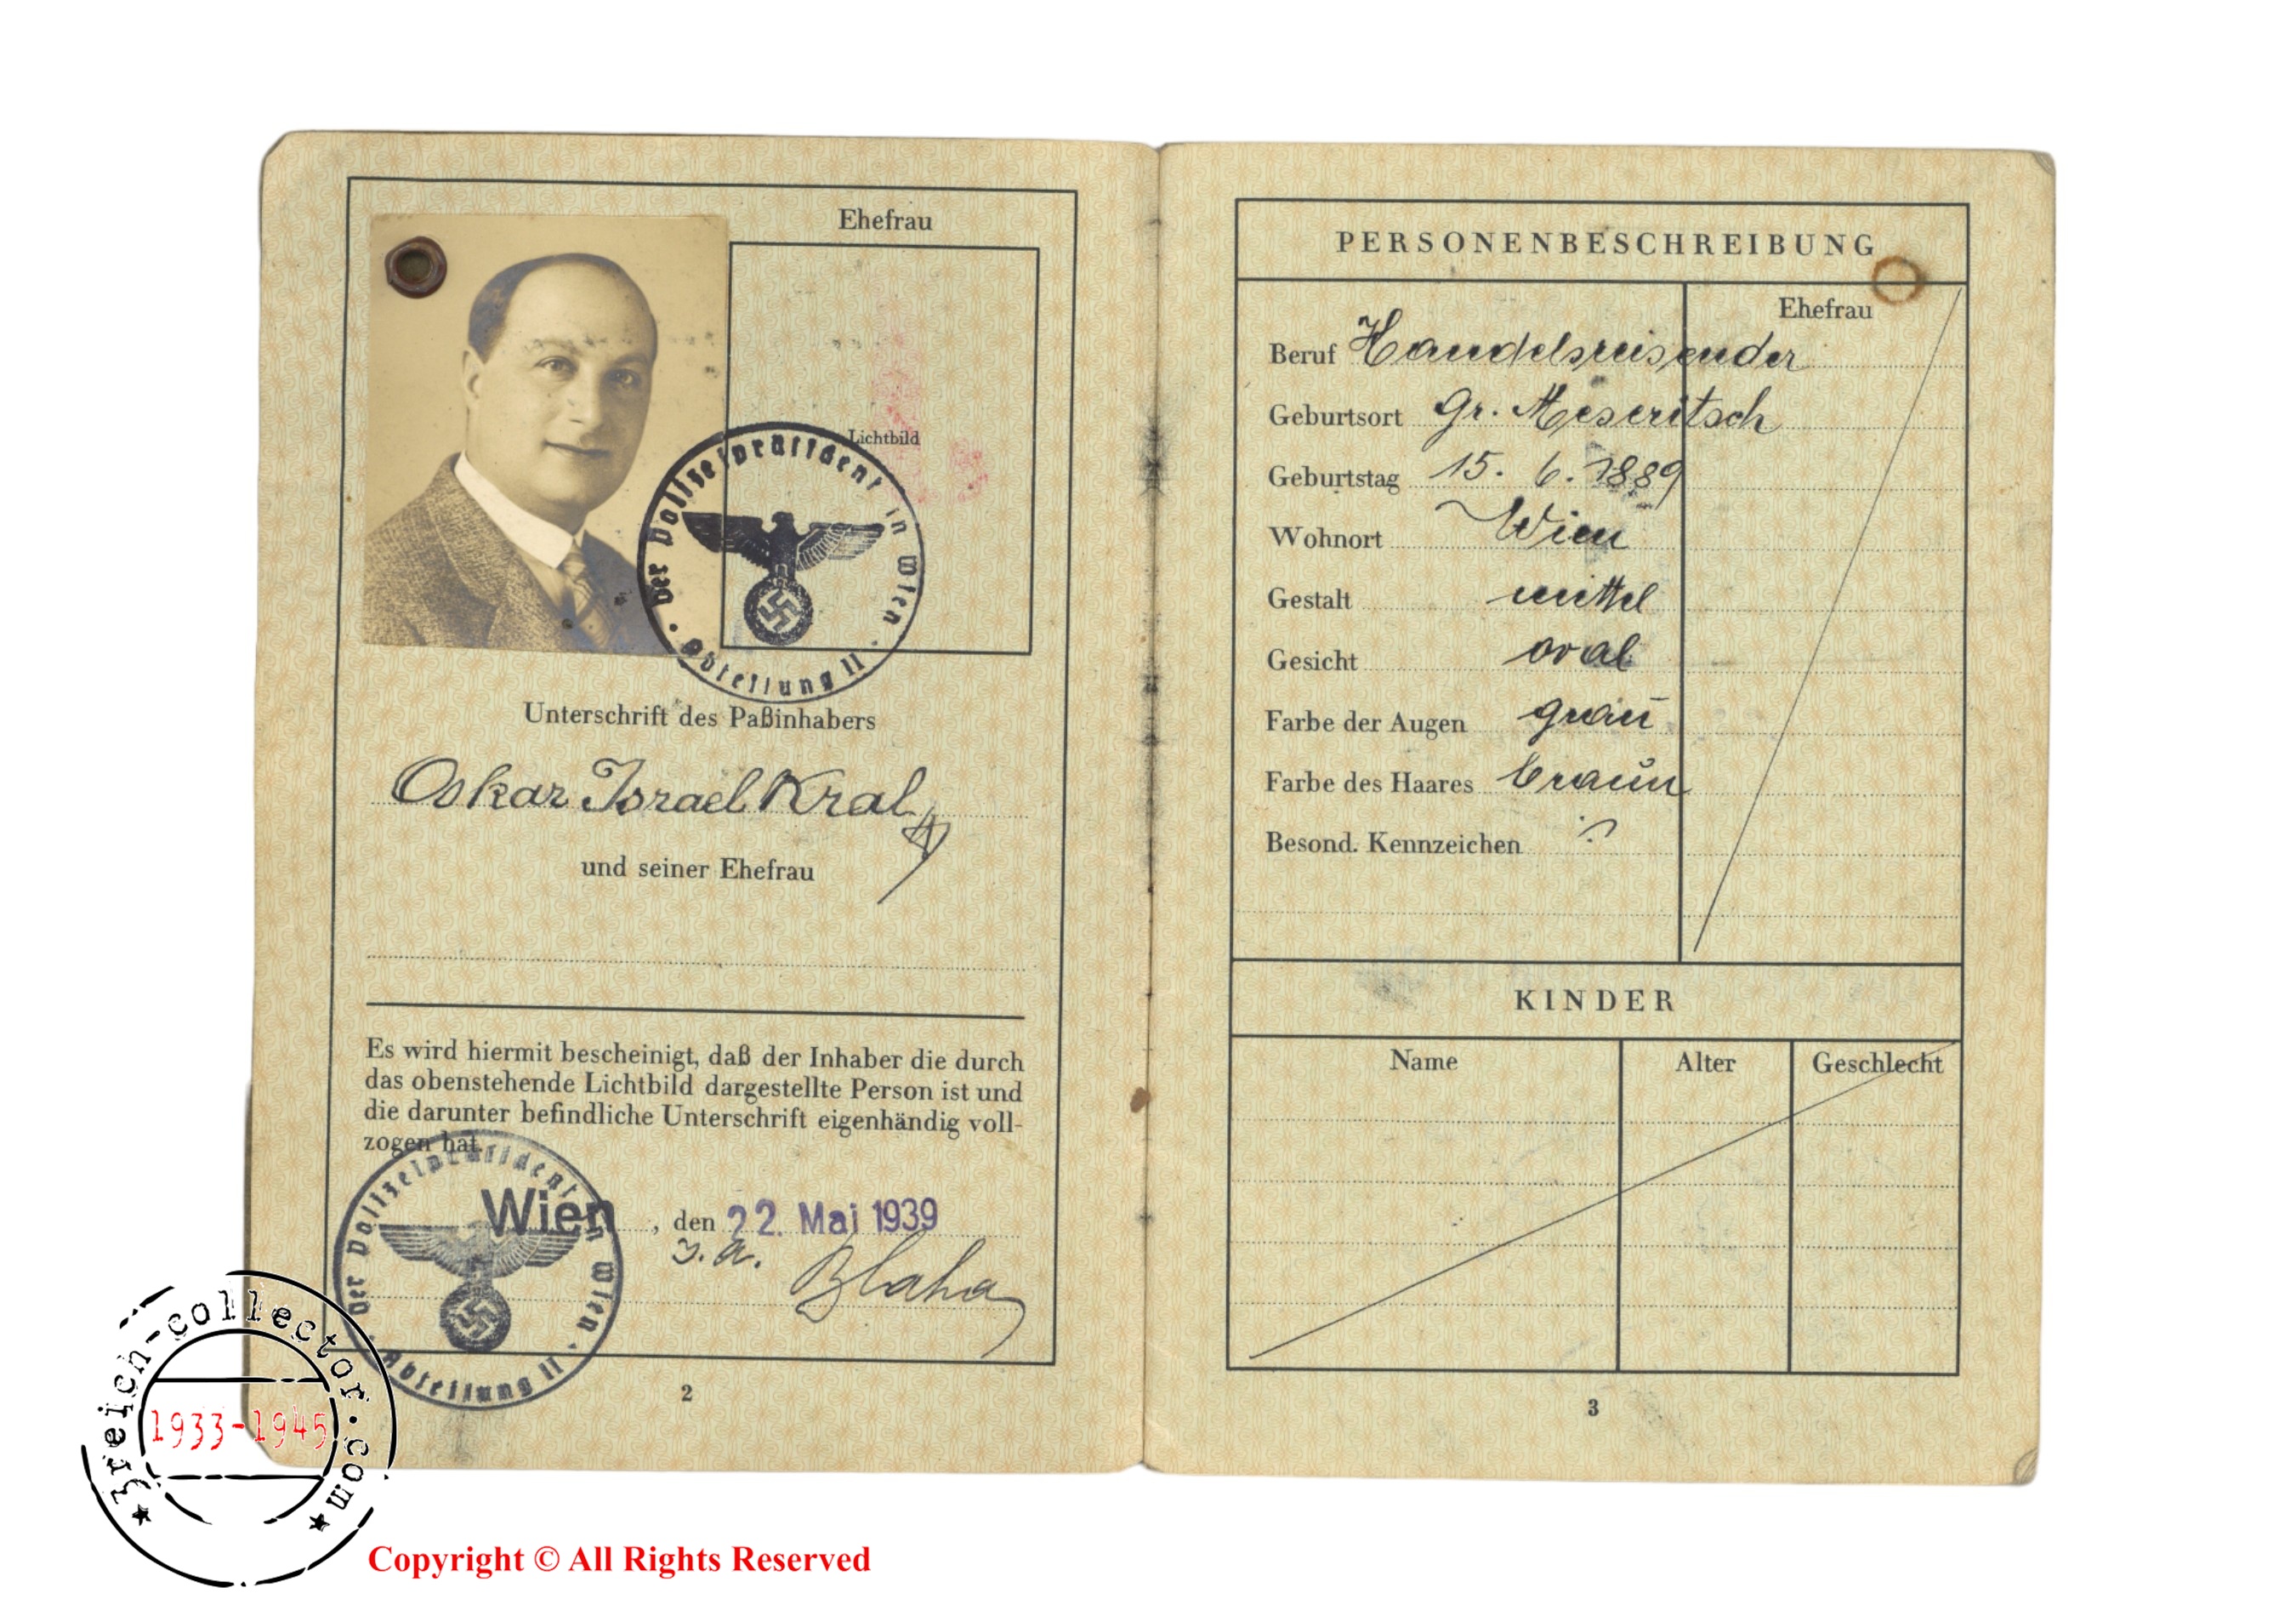 Ehefrau
Lichtbild
Der Polizeipräsident in Wien · Abteilung II ·
Unterschrift des Paßinhabers
Oskar Israel Kral
und seiner Ehefrau
Es wird hiermit bescheinigt, daß der Inhaber die durch
das obenstehende Lichtbild dargestellte Person ist und
die darunter befindliche Unterschrift eigenhändig voll-
zogen hat.
Wien, den 22. Mai 1939
I. A. Blaha
Der Polizeipräsident in Wien · Abteilung II ·
2
PERSONENBESCHREIBUNG
Ehefrau
Beruf Handelsreisender
Geburtsort Gr. Meseritsch
Geburtstag 15. 6. 1889
Wohnort Wien
Gestalt mittel
Gesicht oval
Farbe der Augen grau
Farbe des Haares braun
Besond. Kennzeichen
KINDER
Name Alter Geschlecht
3
3reich-collector.com
1933-1945
Copyright © All Rights Reserved